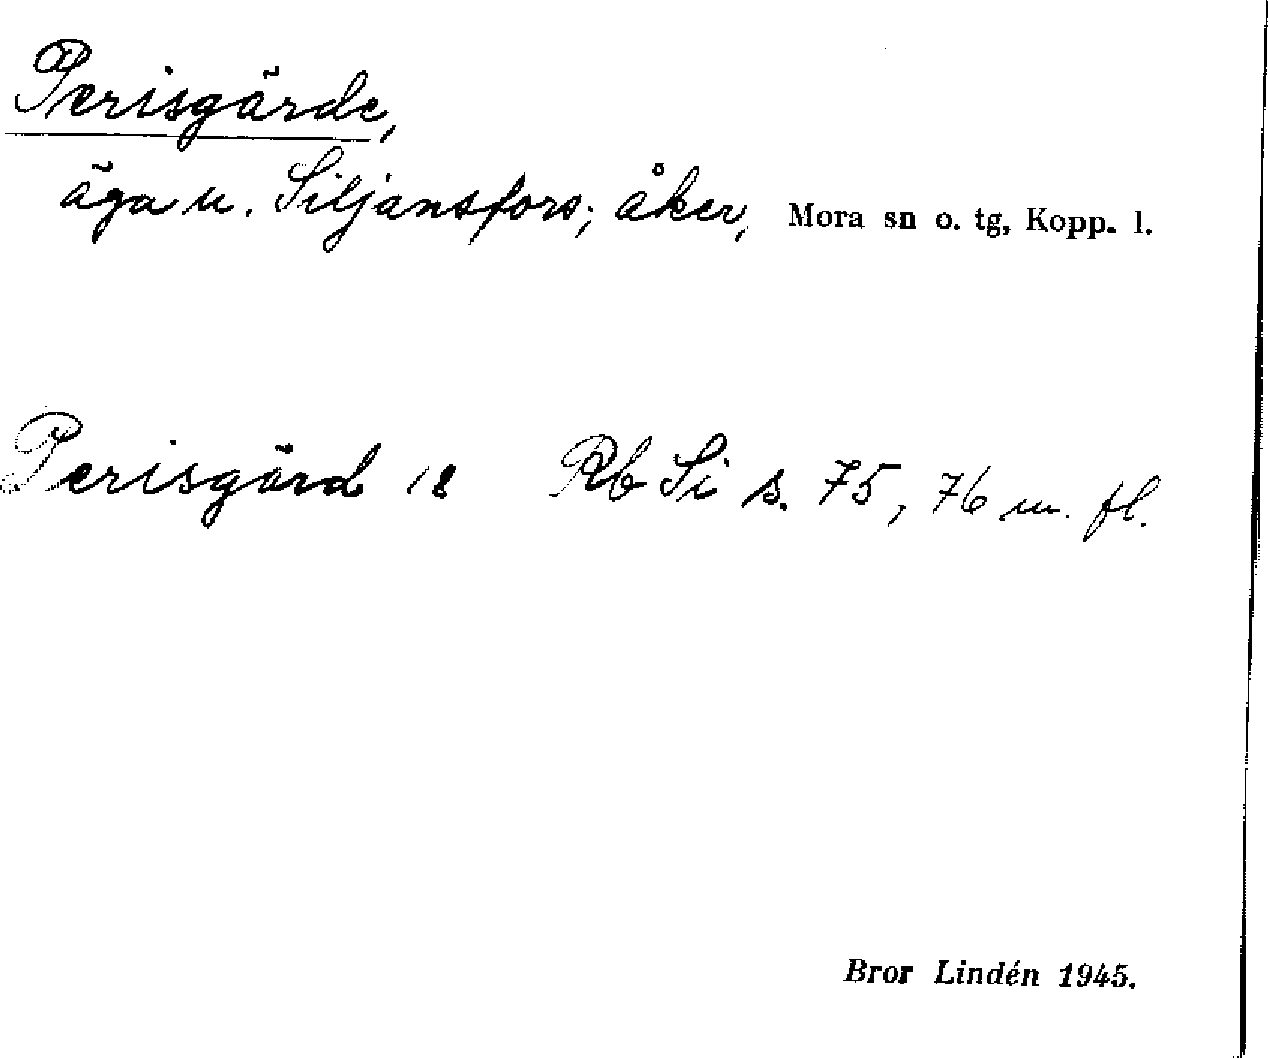 Perisgärde,
äga u. Siljansfors; åker, Mora sn o. tg, Kopp. l.
Perisgärd 18 Rb Si s. 75, 76 m. fl.
Bror Lindén 1945.